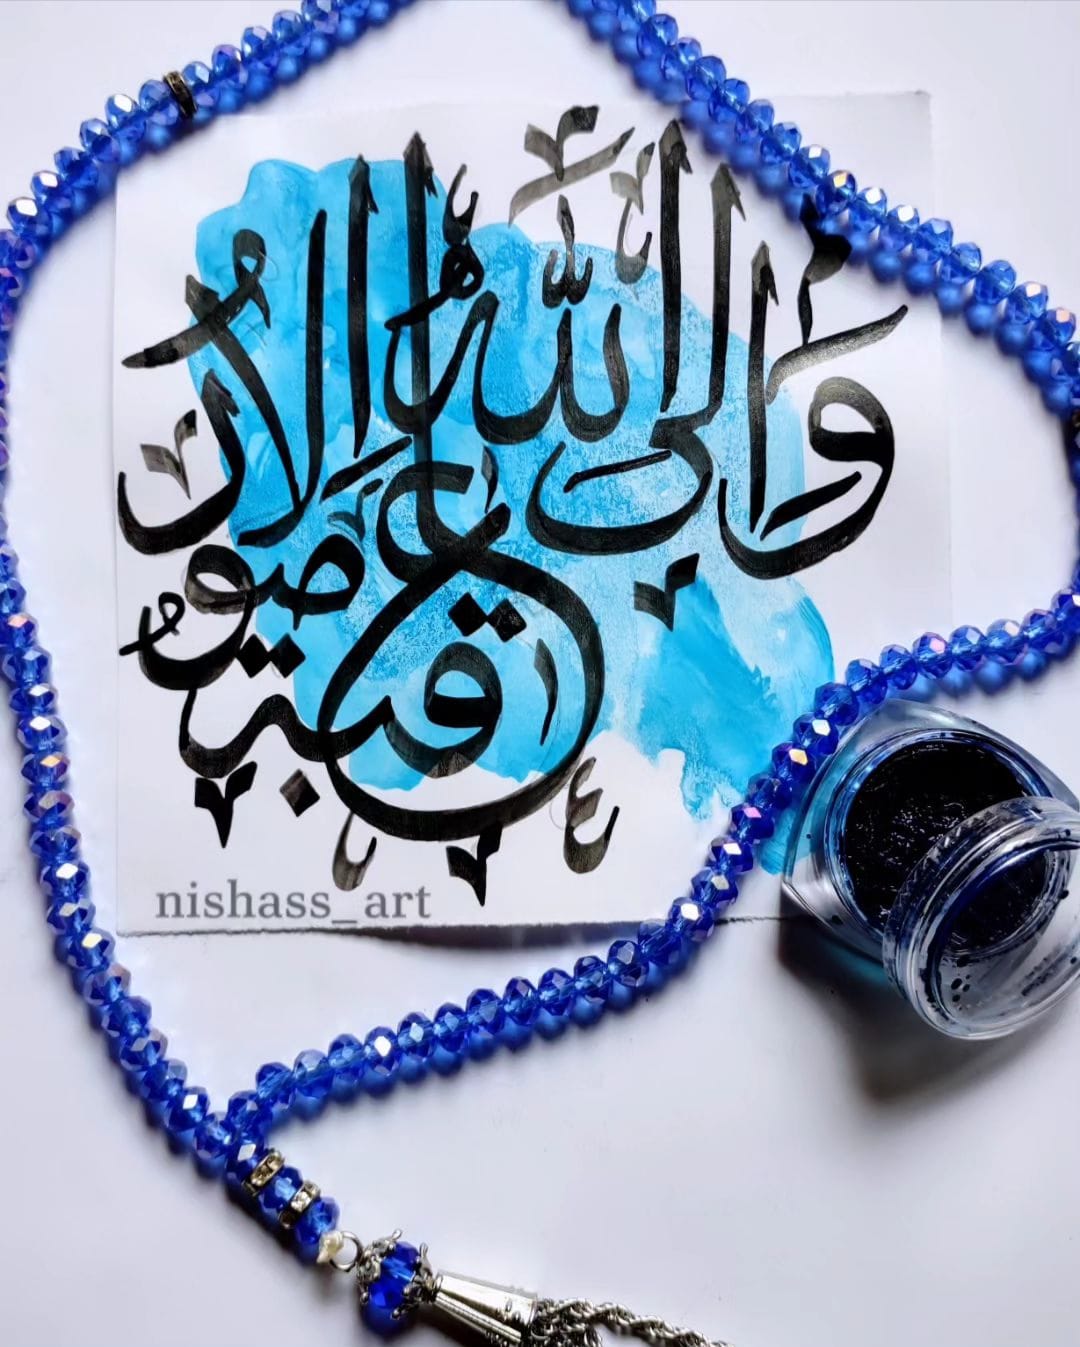 وَإلى اللّٰه عاقبة الأمور
nishass_art